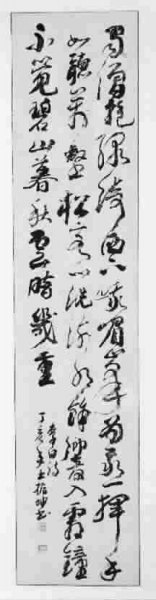 蜀僧抱綠綺西下峨眉峯為我一揮手
如聽萬壑松客心洗流水餘響入霜鐘
不覺碧山暮秋雲暗幾重
李白詩
丁亥書